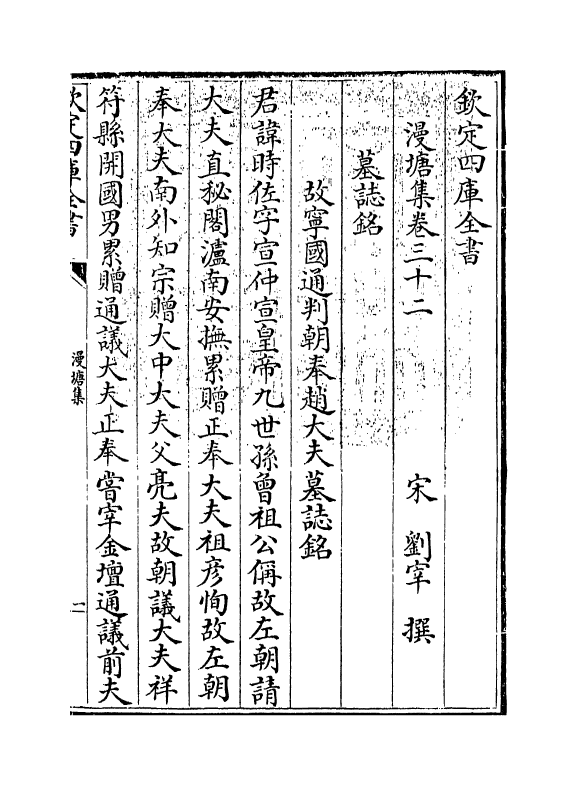 欽定四庫全書
漫塘集卷三十二　宋　劉宰　撰
墓誌銘
故寧國通判朝奉趙大夫墓誌銘
君諱時佐字宣仲宣皇帝九世孫曾祖公偁故左朝請
大夫直秘閣瀘南安撫累贈正奉大夫祖彦恂故左朝
奉大夫南外知宗贈大中大夫父亮夫故朝議大夫祥
符縣開國男累贈通議大夫正奉嘗宰金壇通議前夫
欽定四庫全書
漫塘集
一